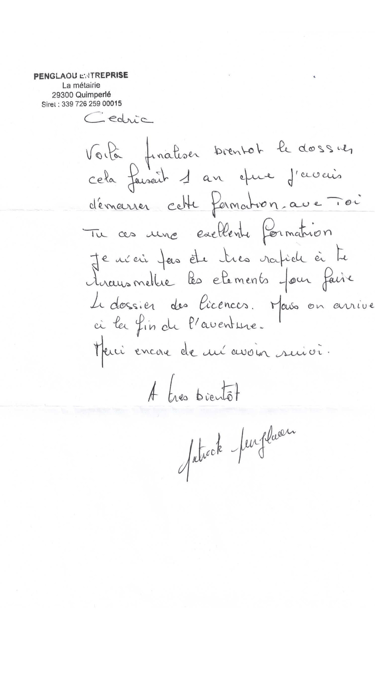 PENGLAOU ENTREPRISE
La métairie
29300 Quimperlé
Siret : 339 726 259 00015
Cedric
Voilà finaliser bientot le dossier
cela faisait 1 an que j'avais
démarrer cette formation avec Toi
Tu as une exellente formation
Je n'ai pas été tres rapide à te
transmettre les elements pour faire
le dossier des licences. Mais on arrive
à la fin de l'aventure.
Merci encore de m'avoir suivi.
A tres bientôt
Patrick Penglaou